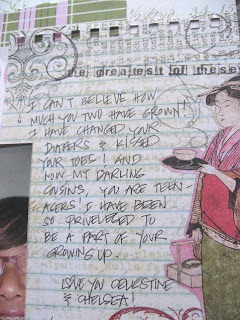 the greatest of these
I CAN'T BELIEVE HOW
MUCH YOU TWO HAVE GROWN!
I HAVE CHANGED YOUR
DIAPERS & KISSED
YOUR TOES! AND
NOW MY DARLING
COUSINS, YOU ARE TEEN-
AGERS! I HAVE BEEN
SO PRIVELEGED TO
BE A PART OF YOUR
GROWING UP.
LOVE YOU CELESTINE
& CHELSEA!